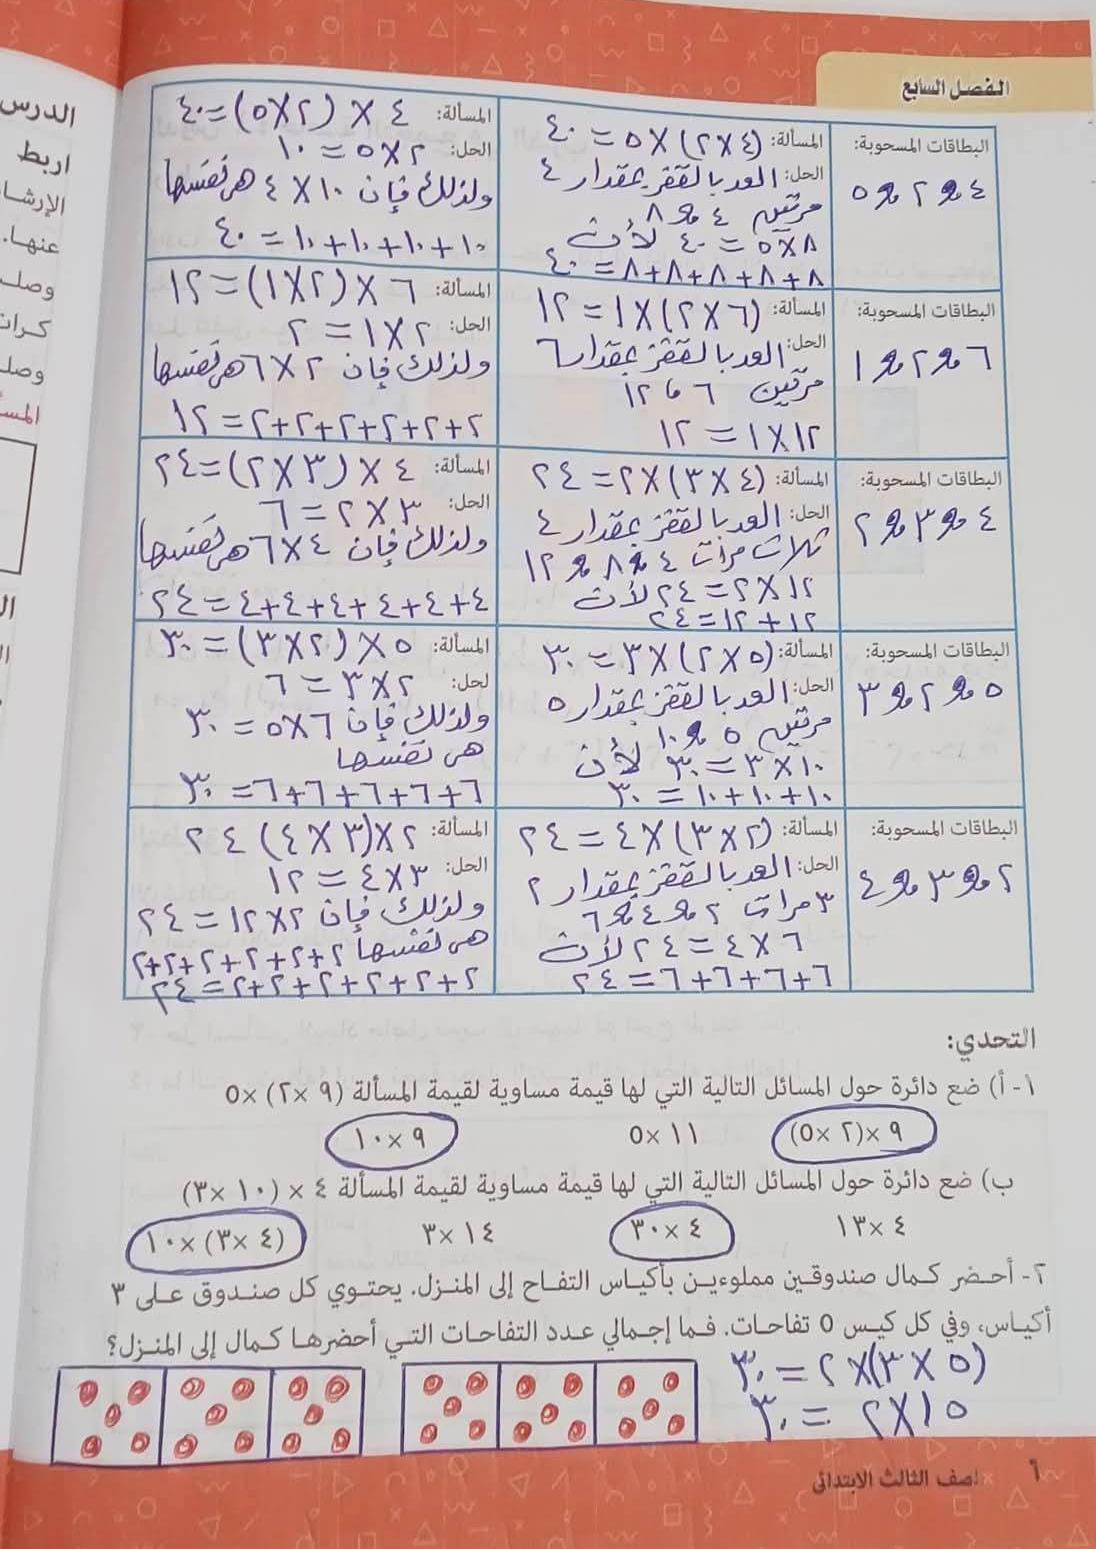 الفصل السابع
البطاقات المسحوبة:
٤ و ٢ و ٥
المسألة: (٤×٢)×٥=٤٠
الحل: العد بالقفز بمقدار ٤
مرتين ٤ و ٨
٨×٥=٤٠ لأن
٨+٨+٨+٨+٨=٤٠
المسألة: ٤×(٢×٥)=٤٠
الحل: ٢×٥=١٠
ولذلك فإن ١٠×٤ هي نفسها
١٠+١٠+١٠+١٠=٤٠
البطاقات المسحوبة:
٦ و ٢ و ١
المسألة: (٦×٢)×١=١٢
الحل: العد بالقفز بمقدار ٦
مرتين ٦ ، ١٢
١٢×١=١٢
المسألة: ٦×(٢×١)=١٢
الحل: ٢×١=٢
ولذلك فإن ٢×٦ هي نفسها
٢+٢+٢+٢+٢+٢=١٢
البطاقات المسحوبة:
٤ و ٣ و ٢
المسألة: (٤×٣)×٢=٢٤
الحل: العد بالقفز بمقدار ٤
ثلاث مرات ٤ و ٨ و ١٢
١٢×٢=٢٤ لأن
١٢+١٢=٢٤
المسألة: ٤×(٣×٢)=٢٤
الحل: ٣×٢=٦
ولذلك فإن ٤×٦ هي نفسها
٤+٤+٤+٤+٤+٤=٢٤
البطاقات المسحوبة:
٥ و ٢ و ٣
المسألة: (٥×٢)×٣=٣٠
الحل: العد بالقفز بمقدار ٥
مرتين ٥ و ١٠
١٠×٣=٣٠ لأن
١٠+١٠+١٠=٣٠
المسألة: ٥×(٢×٣)=٣٠
لحل: ٢×٣=٦
ولذلك فإن ٦×٥=٣٠
هي نفسها
٦+٦+٦+٦+٦=٣٠
البطاقات المسحوبة:
٢ و ٣ و ٤
المسألة: (٢×٣)×٤=٢٤
الحل: العد بالقفز بمقدار ٢
٣ مرات ٢ و ٤ و ٦
٦×٤=٢٤ لأن
٦+٦+٦+٦=٢٤
المسألة: ٢×(٣×٤) ٢٤
الحل: ٣×٤=١٢
ولذلك فإن ٢×١٢=٢٤
هي نفسها ٢+٢+٢+٢+٢+٢+
٢+٢+٢+٢+٢+٢=٢٤
التحدي:
١- أ) ضع دائرة حول المسائل التالية التي لها قيمة مساوية لقيمة المسألة (٩ ×٢) ×٥
٩ ×(٢ ×٥)
١١ ×٥
٩ ×١٠
ب) ضع دائرة حول المسائل التالية التي لها قيمة مساوية لقيمة المسألة ٤ × (١٠ ×٣)
٤ ×١٣
٤ ×٣٠
١٤ ×٣
(٤ ×٣) ×١٠
٢- أحضر كمال صندوقين مملوءين بأكياس التفاح إلى المنزل. يحتوي كل صندوق على ٣
أكياس، وفي كل كيس ٥ تفاحات. فما إجمالي عدد التفاحات التي أحضرها كمال إلى المنزل؟
(٥×٣)×٢=٣٠
١٥×٢=٣٠
لصف الثالث الابتدائي
الدرس
اربط
الإرشا
عنها.
وصلـ
كرات
وصلـ
المسـ